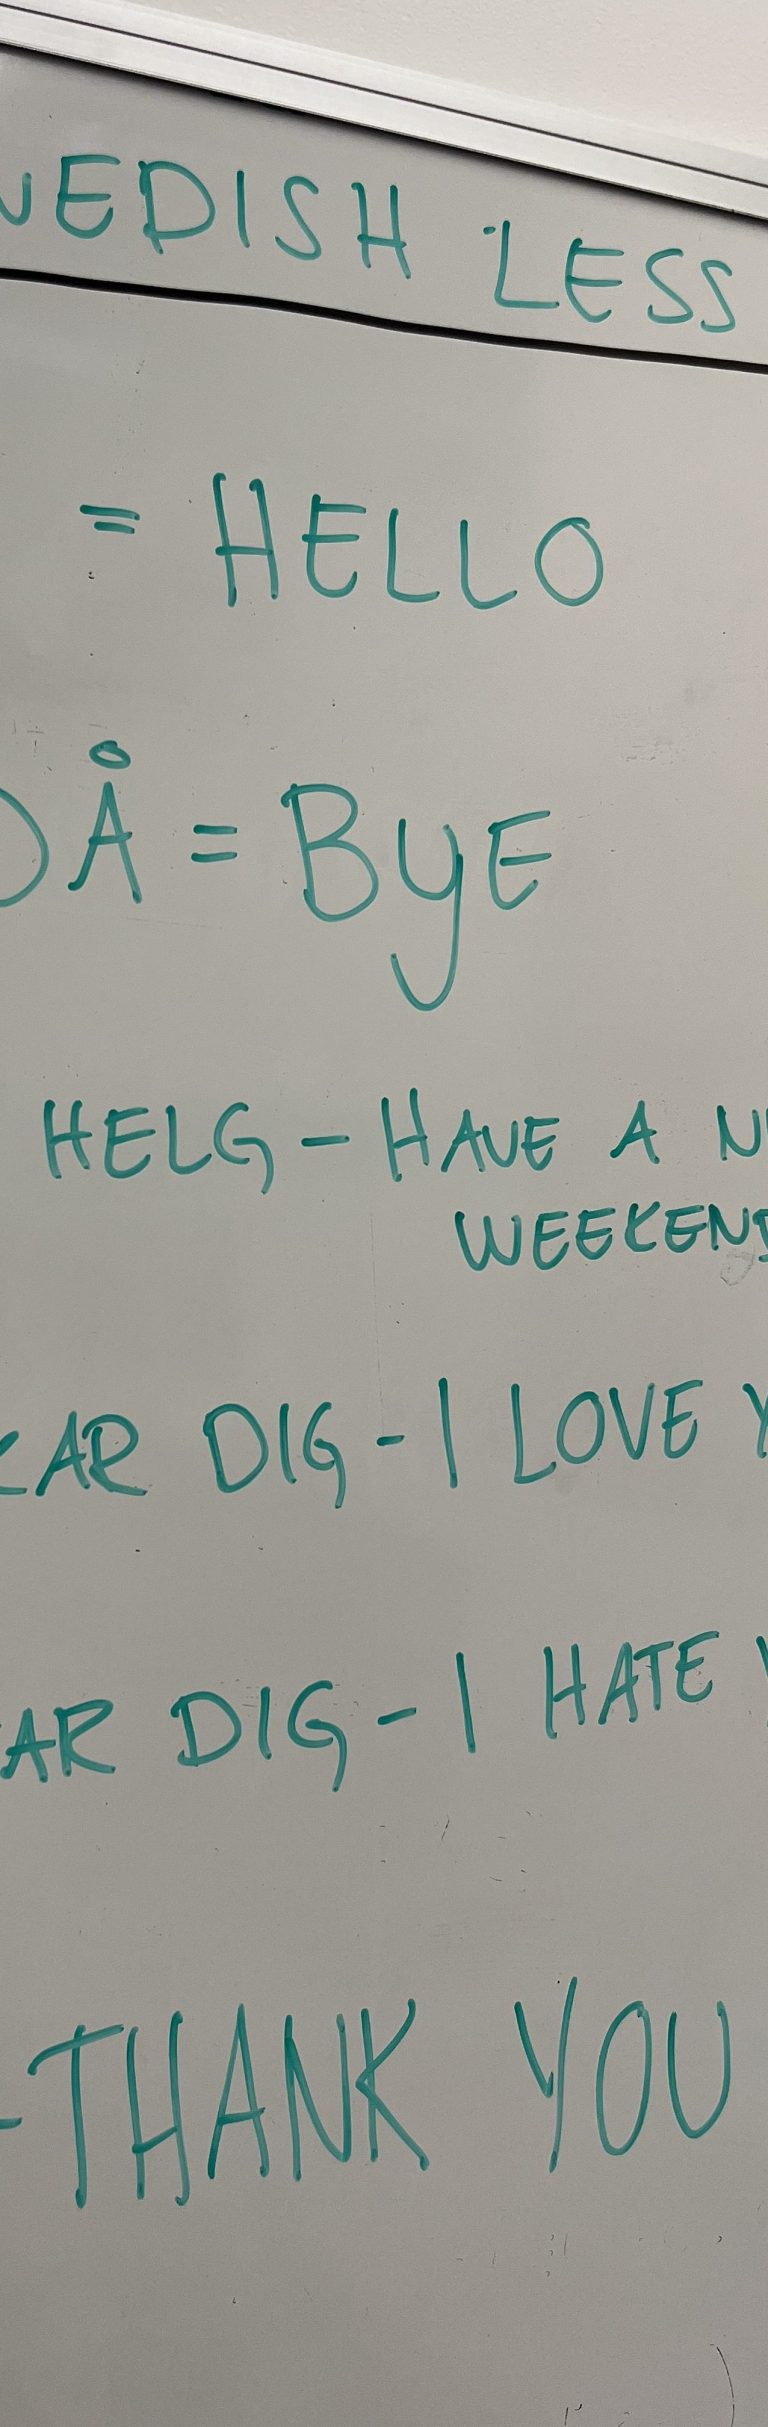 WEDISH LESS
= HELLO
DÅ = BYE
HELG - HAVE A
WEEKEND
DIG - I LOVE
DIG - I HATE
- THANK YOU